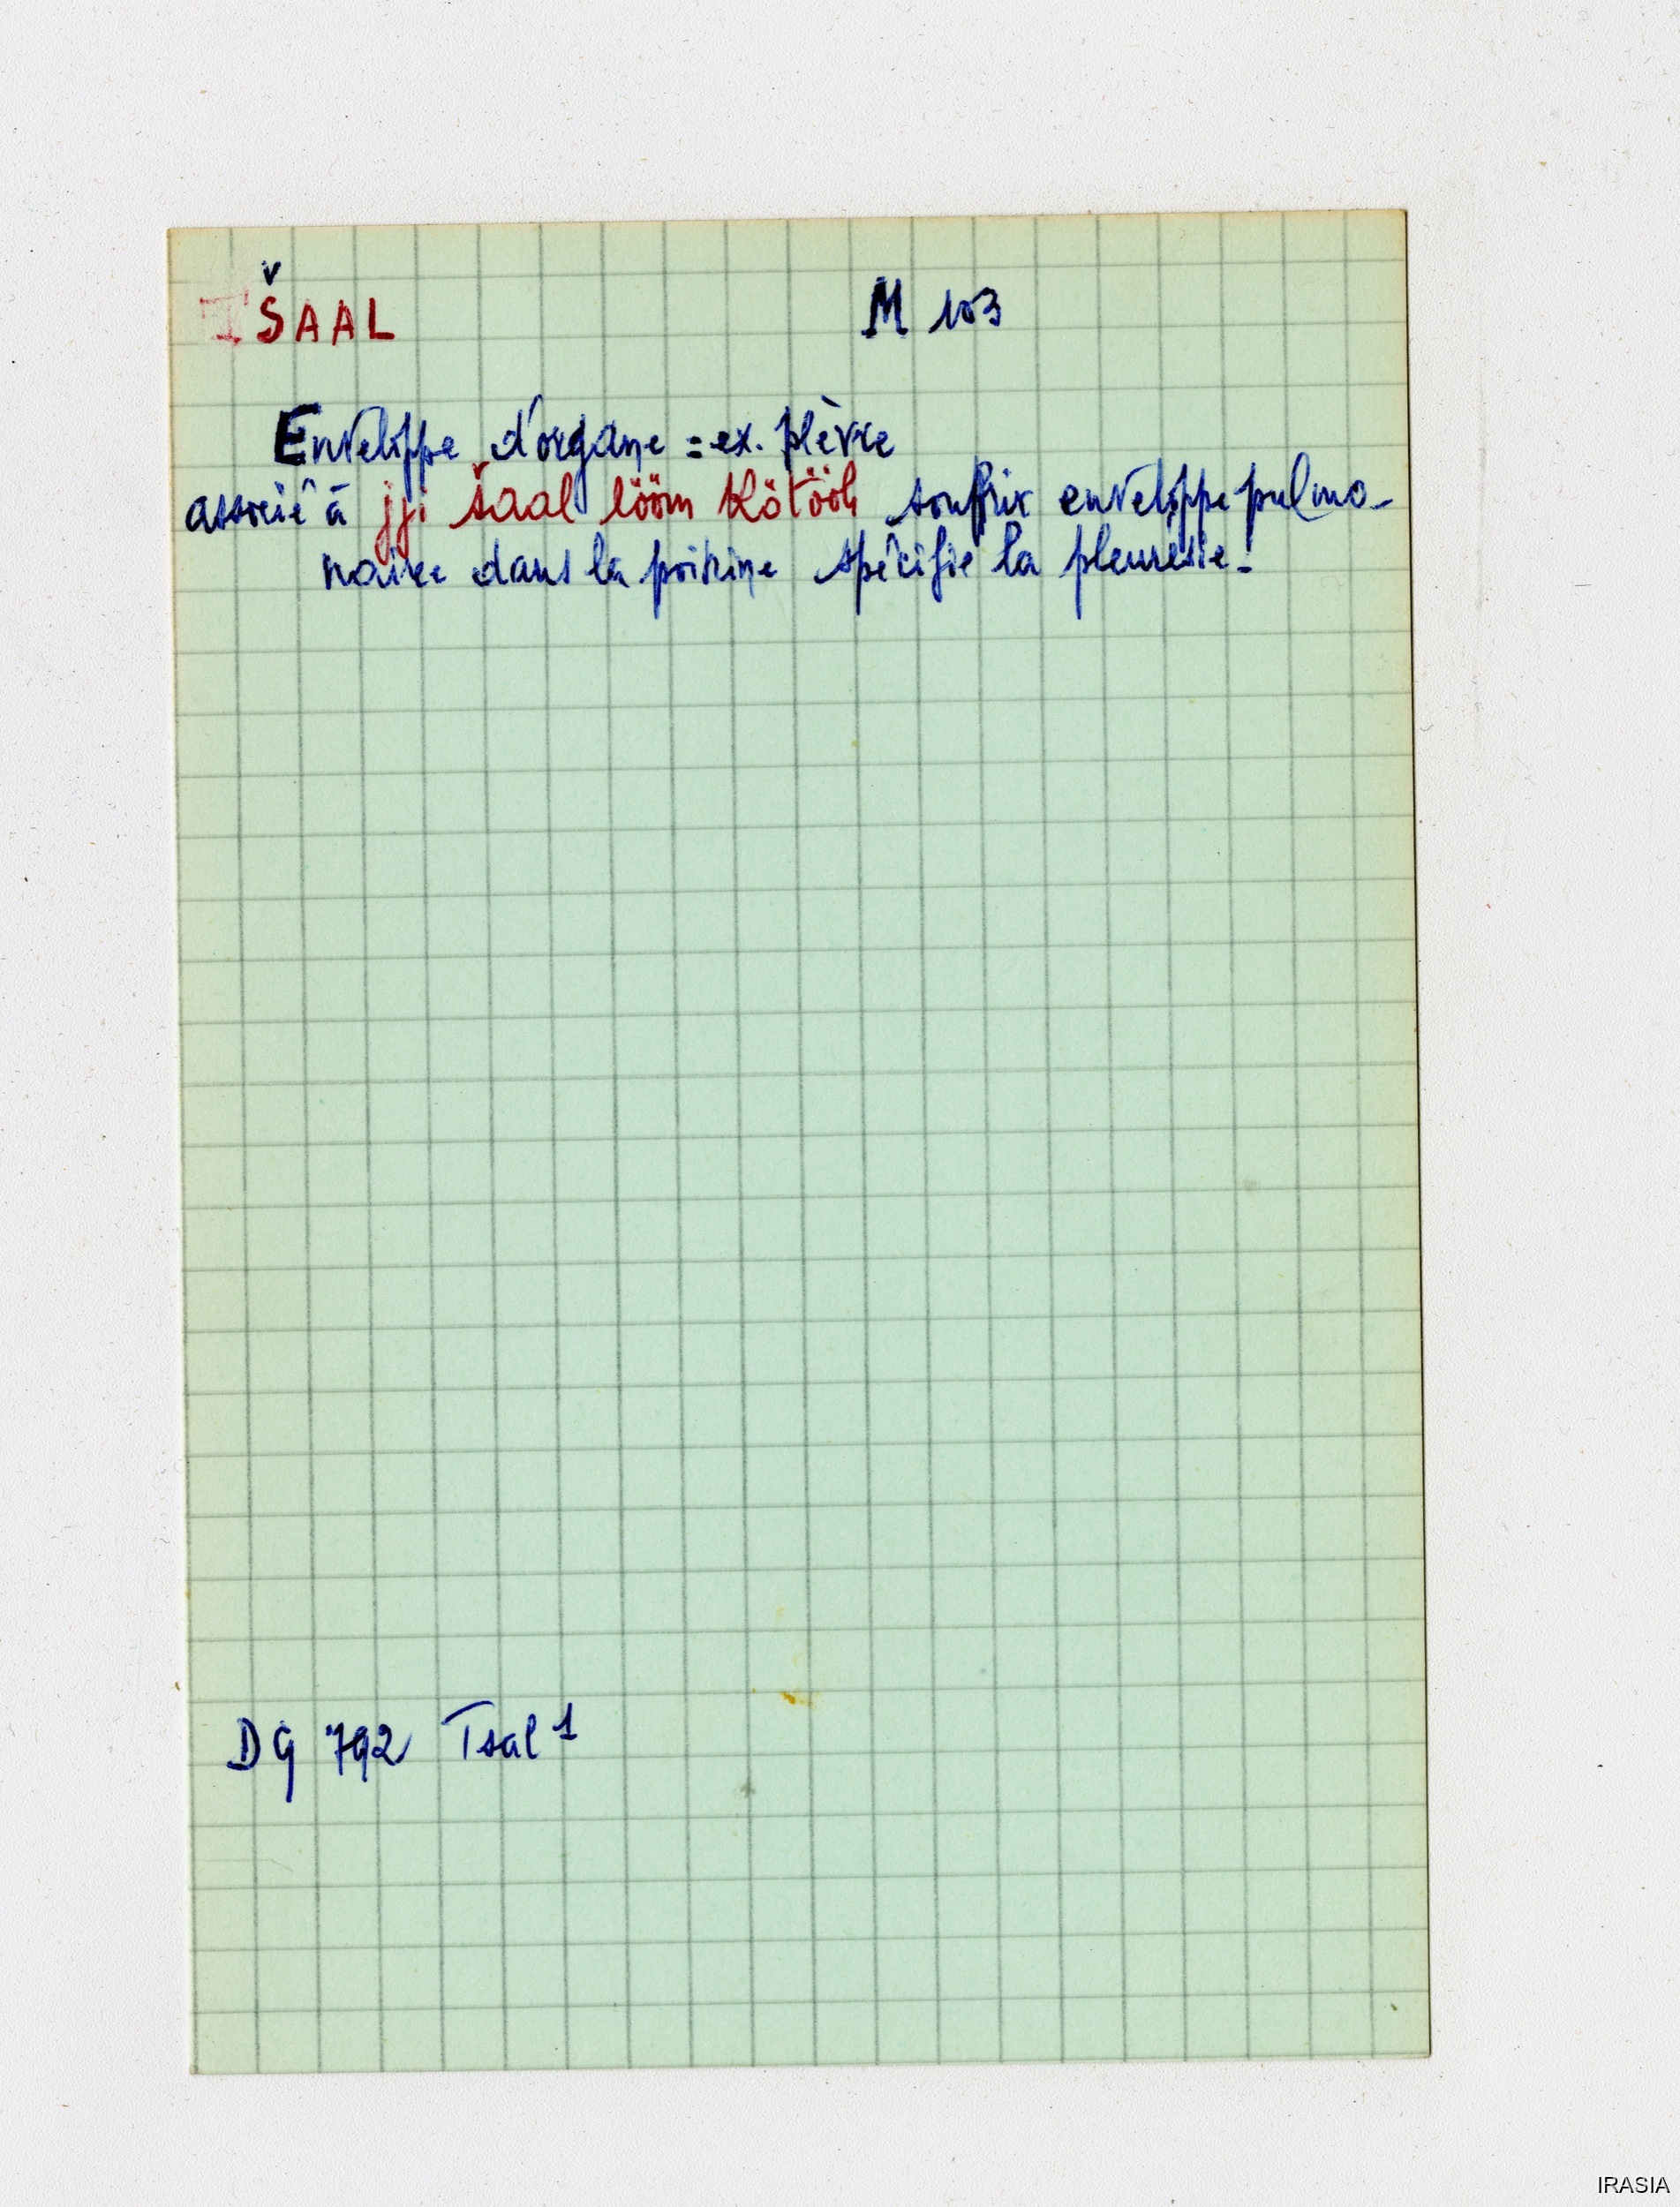 ŠAAL M 103
Enveloppe d'organe = ex. plèvre
associé à jji šaal lööm Kötööh souffrir enveloppe pulmo-
naire dans la poitrine spécifie la pleurésie.
DG 792 Tsal 1
IRASIA